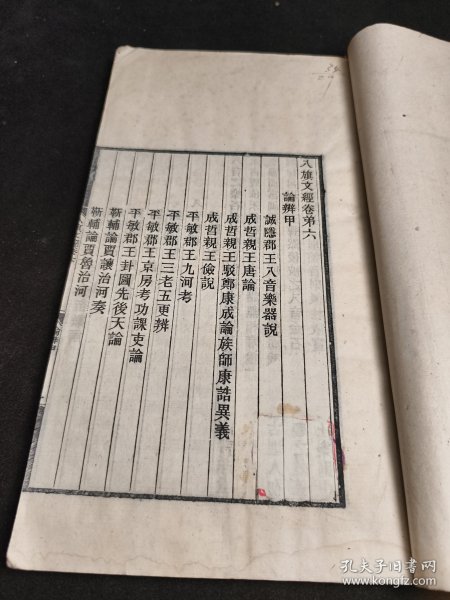 八旗文經卷第六
論辨甲
誠隱郡王八音樂器說
成哲親王唐論
成哲親王駁鄭康成論族師康誥異義
成哲親王儉說
平敏郡王九河考
平敏郡王三老五更辨
平敏郡王京房考功課吏論
平敏郡王卦圖先後天論
靳輔論賈讓治河奏
靳輔論賈魯治河
孔夫子旧书网
www.kongfz.com